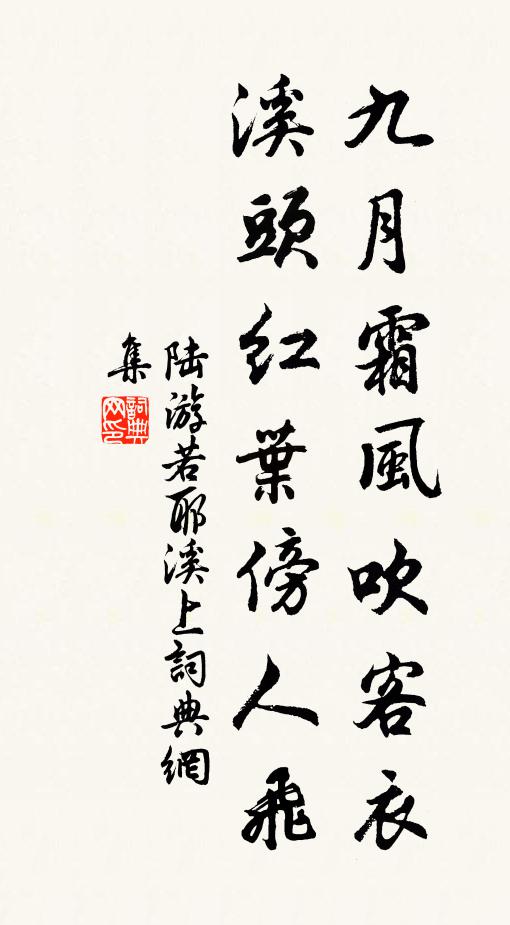 九月霜風吹客衣
溪頭紅葉傍人飛
陆游若耶溪上詞典網
集
詞典
网印